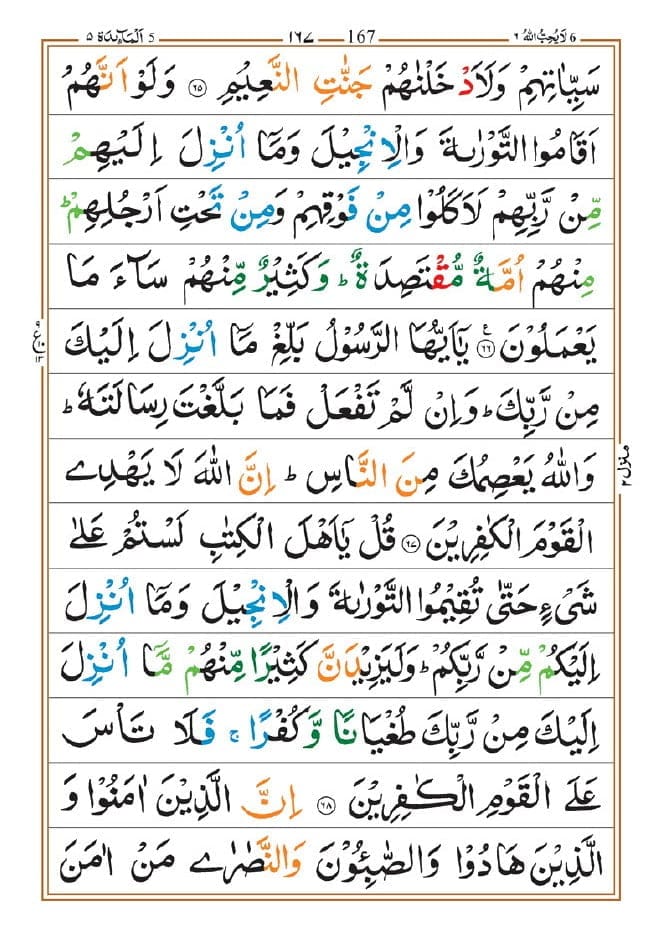 لَا يُحِبُّ اللهُ ٦ 6 167 ١٦٧ اَلْمَآئِدَة ٥ 5
سَيِّاٰتِهِمْ وَلَاَدْخَلْنٰهُمْ جَنّٰتِ النَّعِيْمِ ﴿٦٥﴾ وَلَوْ اَنَّهُمْ
اَقَامُوا التَّوْرٰىةَ وَالْاِنْجِيْلَ وَمَاۤ اُنْزِلَ اِلَيْهِمْ
مِّنْ رَّبِّهِمْ لَاَكَلُوْا مِنْ فَوْقِهِمْ وَمِنْ تَحْتِ اَرْجُلِهِمْ ؕ
مِنْهُمْ اُمَّةٌ مُّقْتَصِدَةٌ ؕ وَكَثِيْرٌ مِّنْهُمْ سَآءَ مَا
يَعْمَلُوْنَ ﴿٦٦﴾ ع يٰۤاَيُّهَا الرَّسُوْلُ بَلِّغْ مَاۤ اُنْزِلَ اِلَيْكَ
مِنْ رَّبِّكَ ؕ وَاِنْ لَّمْ تَفْعَلْ فَمَا بَلَّغْتَ رِسَالَتَهٗ ؕ
وَاللهُ يَعْصِمُكَ مِنَ النَّاسِ ؕ اِنَّ اللهَ لَا يَهْدِى
الْقَوْمَ الْكٰفِرِيْنَ ﴿٦٧﴾ قُلْ يٰۤاَهْلَ الْكِتٰبِ لَسْتُمْ عَلٰى
شَىْءٍ حَتّٰى تُقِيْمُوا التَّوْرٰىةَ وَالْاِنْجِيْلَ وَمَاۤ اُنْزِلَ
اِلَيْكُمْ مِّنْ رَّبِّكُمْ ؕ وَلَيَزِيْدَنَّ كَثِيْرًا مِّنْهُمْ مَّاۤ اُنْزِلَ
اِلَيْكَ مِنْ رَّبِّكَ طُغْيَانًا وَّكُفْرًا ۚ فَلَا تَاْسَ
عَلَى الْقَوْمِ الْكٰفِرِيْنَ ﴿٦٨﴾ اِنَّ الَّذِيْنَ اٰمَنُوْا وَ
الَّذِيْنَ هَادُوْا وَالصّٰبِـُٔوْنَ وَالنَّصٰرٰى مَنْ اٰمَنَ
منزل ٢